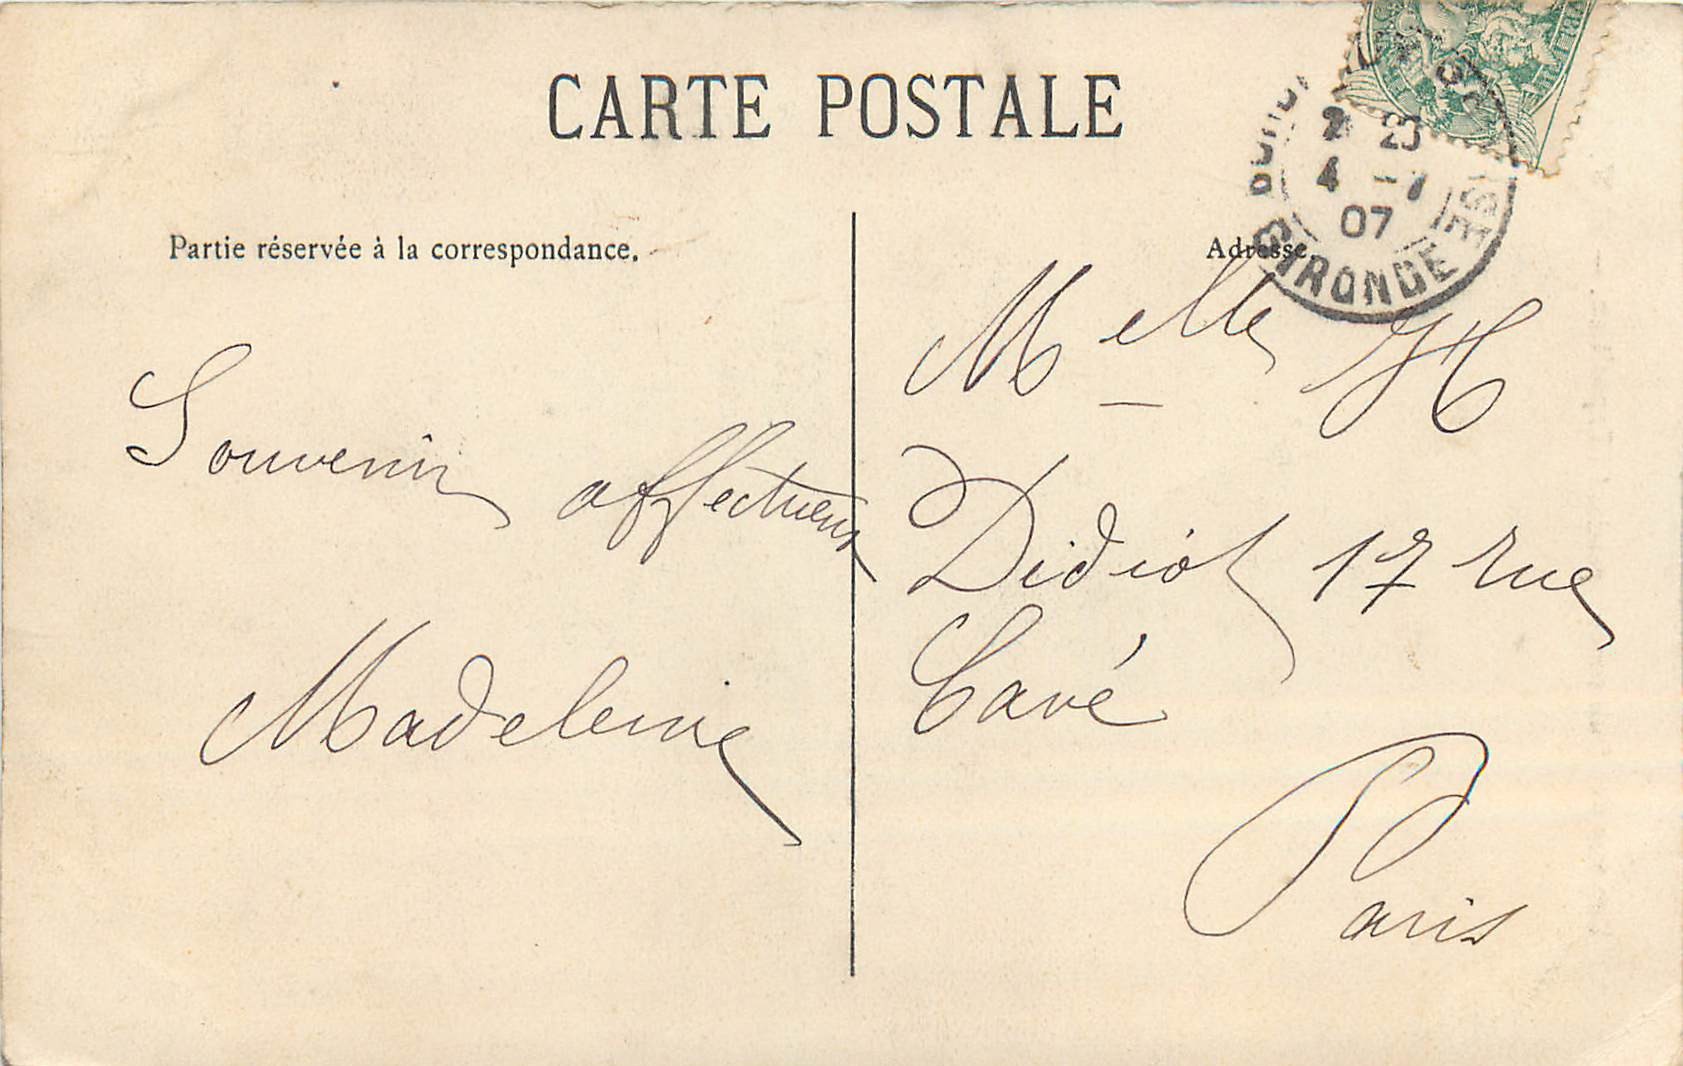 CARTE POSTALE
Partie réservée à la correspondance.
Souvenir affectueux
Madeleine
Adresse.
Melle H
Didiot 17 rue
Cavé
Paris
4 -7
07
GIRONDE